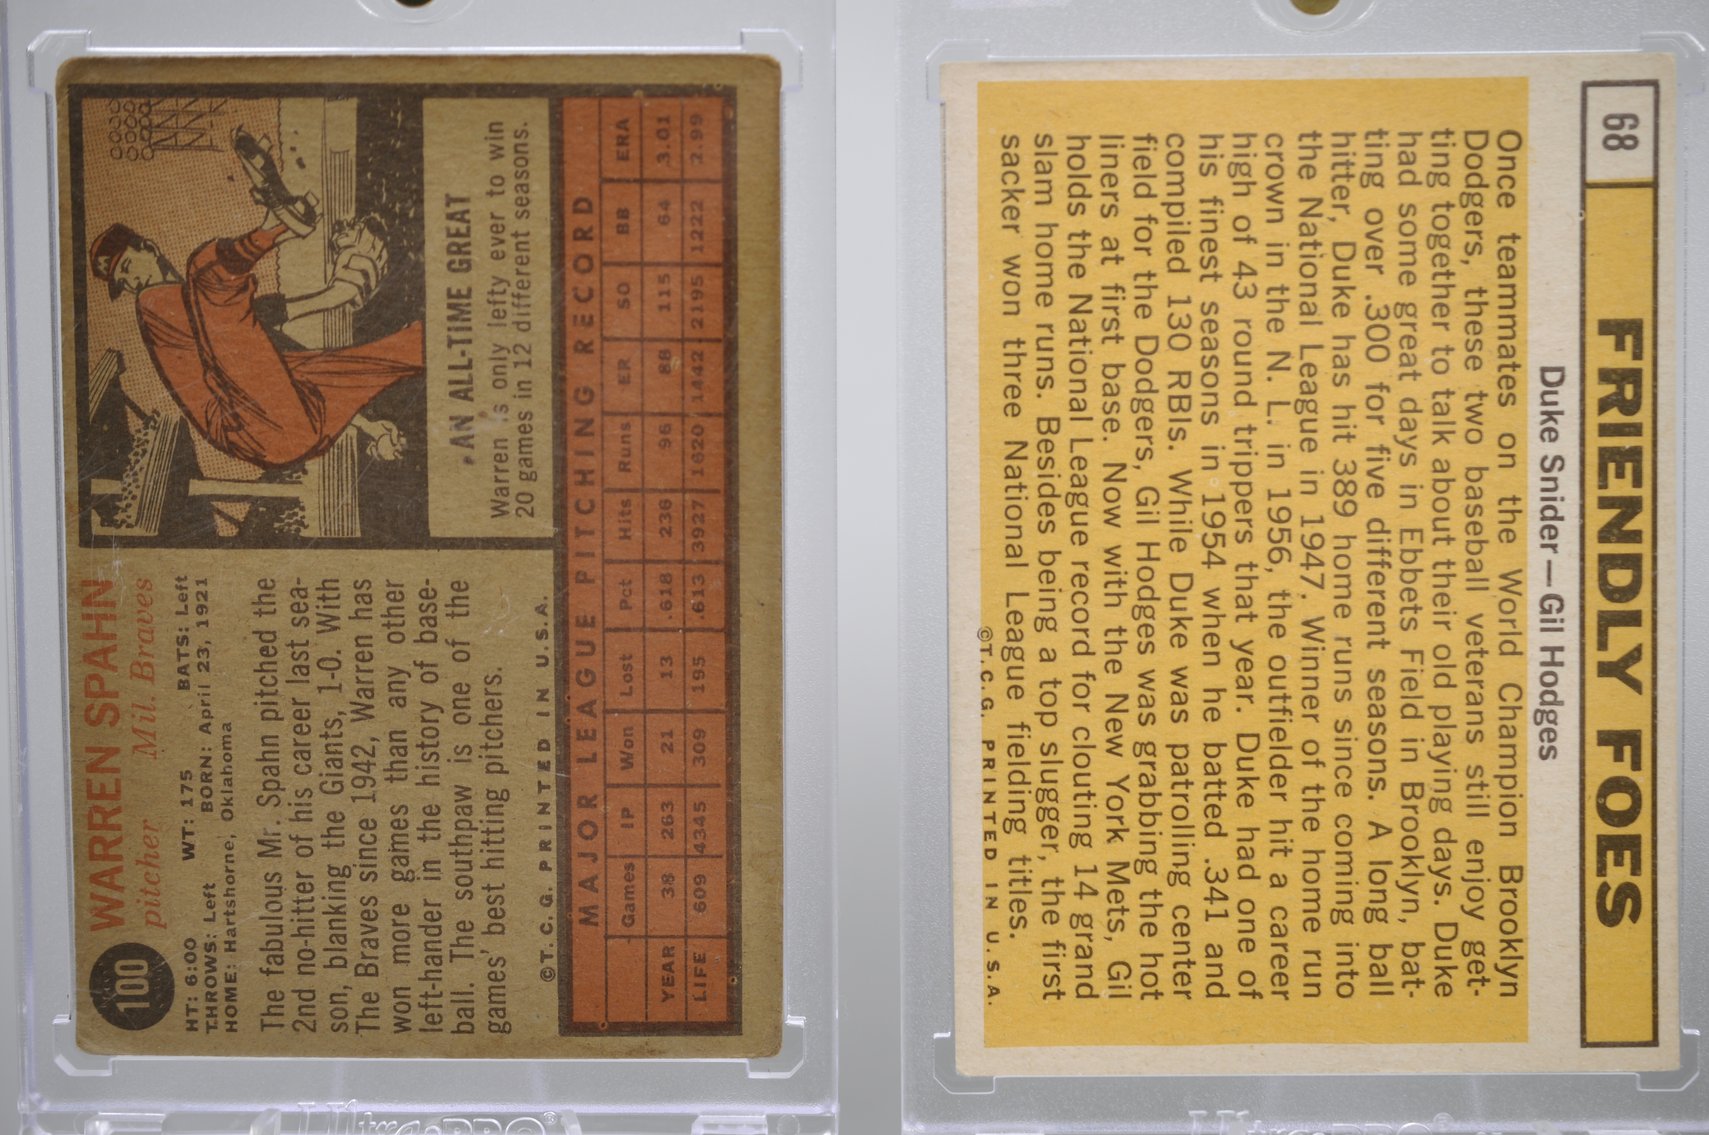 100
WARREN SPAHN
pitcher Mil. Braves
HT: 6:00 WT: 175 BATS: Left
THROWS: Left BORN: April 23, 1921
HOME: Hartshorne, Oklahoma
The fabulous Mr. Spahn pitched the
2nd no-hitter of his career last sea-
son, blanking the Giants, 1-0. With
The Braves since 1942, Warren has
won more games than any other
left-hander in the history of base-
ball. The southpaw is one of the
games' best hitting pitchers.
©T.C.G. PRINTED IN U.S.A.
AN ALL-TIME GREAT
Warren is only lefty ever to win
20 games in 12 different seasons.
MAJOR LEAGUE PITCHING RECORD
Games IP Won Lost Pct Hits Runs ER SO BB ERA
YEAR 38 263 21 13 .618 236 96 88 115 64 3.01
LIFE 609 4345 309 195 .613 3927 1620 1442 2195 1222 2.99
Ultra-PRO
68
FRIENDLY FOES
Duke Snider—Gil Hodges
Once teammates on the World Champion Brooklyn
Dodgers, these two baseball veterans still enjoy get-
ting together to talk about their old playing days. Duke
had some great days in Ebbets Field in Brooklyn, bat-
ting over .300 for five different seasons. A long ball
hitter, Duke has hit 389 home runs since coming into
the National League in 1947. Winner of the home run
crown in the N. L. in 1956, the outfielder hit a career
high of 43 round trippers that year. Duke had one of
his finest seasons in 1954 when he batted .341 and
compiled 130 RBIs. While Duke was patrolling center
field for the Dodgers, Gil Hodges was grabbing the hot
liners at first base. Now with the New York Mets, Gil
holds the National League record for clouting 14 grand
slam home runs. Besides being a top slugger, the first
sacker won three National League fielding titles.
©T.C.G. PRINTED IN U.S.A.